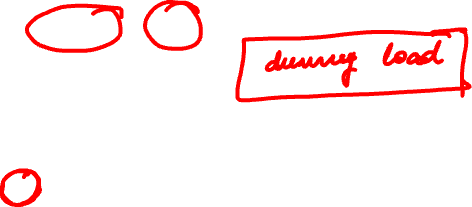 dummy load